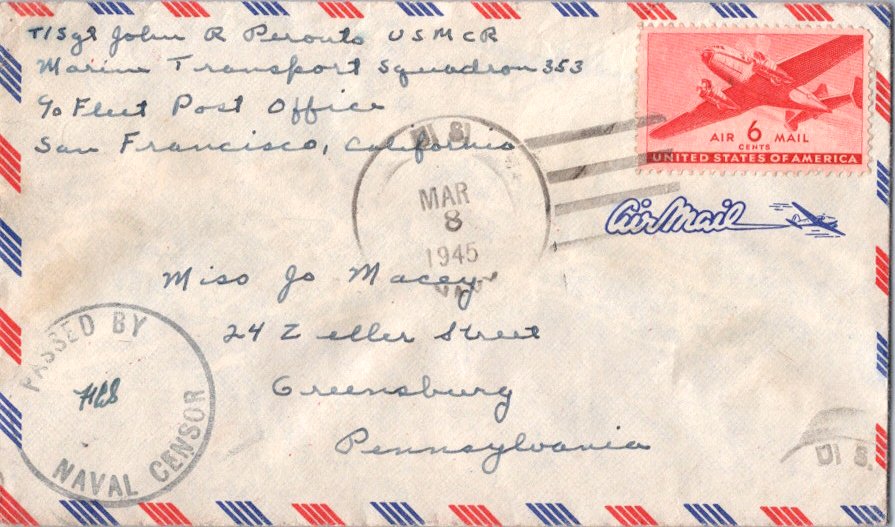 T/Sgt John R Peronto USMCR
Marine Transport Squadron 353
c/o Fleet Post Office
San Francisco, California
AIR 6 MAIL
CENTS
UNITED STATES OF AMERICA
U. S.
MAR
8
1945
NAVY
Air Mail
Miss Jo Macey
24 Zeller Street
Greensburg
Pennsylvania
PASSED BY
NAVAL CENSOR
U. S.